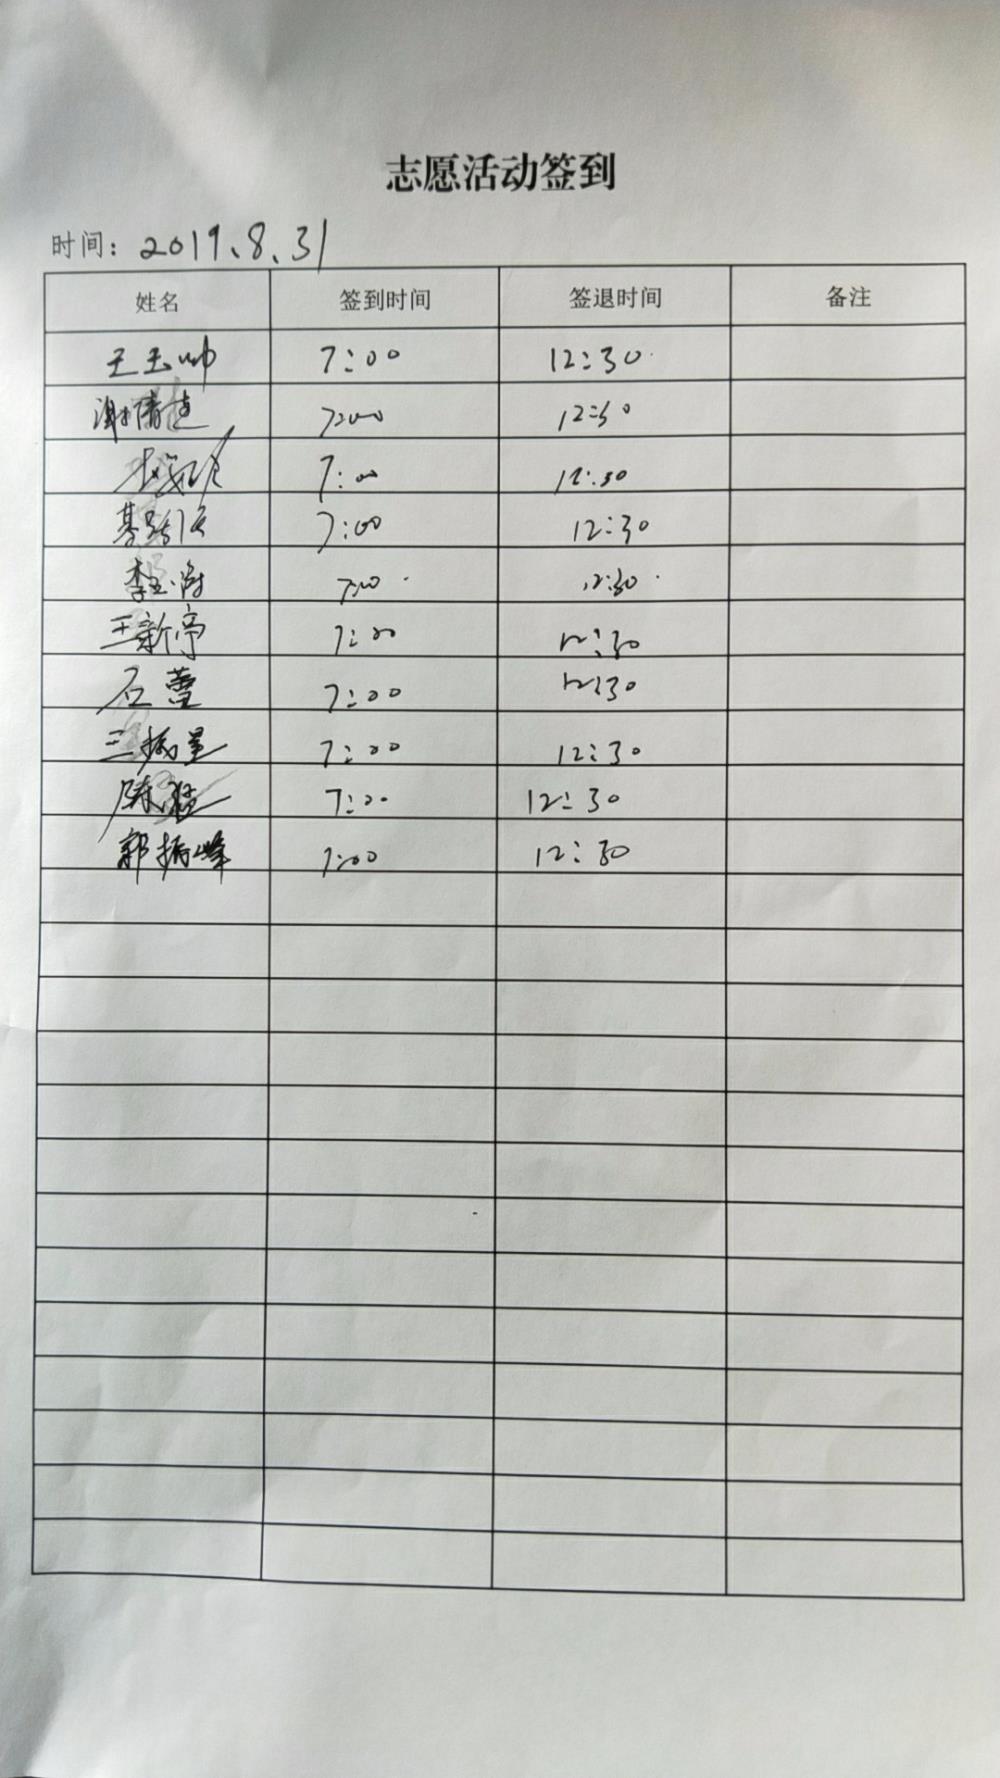 志愿活动签到
时间：2019.8.31
姓名 签到时间 签退时间 备注
王玉帅 7:00 12:30
谢倩 7:00 12:30
7:00 12:30
7:00 12:30
李玉 7:00 12:30
王新亭 7:00 12:30
石蕾 7:00 12:30
王振星 7:00 12:30
陈 7:00 12:30
郭振峰 7:00 12:30